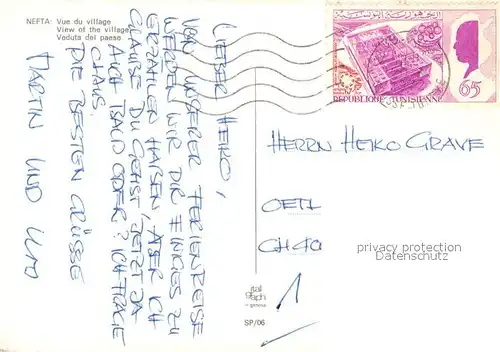 NEFTA: Vue du village
View of the village
Veduta del paese
LIEBER HEIKO,
VON UNSERER FERIENREISE
WERDEN WIR DIR EINIGES ZU
ERZÄHLEN HABEN, ABER ICH
GLAUBE DU GEHST JETZT DA
AUCH BALD ODER? ICH FRAGE
CLAUS.
DIE BESTEN GRÜSSE
MARTIN UND UDO
REPUBLIQUE TUNISIENNE
65
HERRN HEIKO GRAVE
OETL
CH 40
privacy protection
Datenschutz
1
ital
graph
genova
SP/06